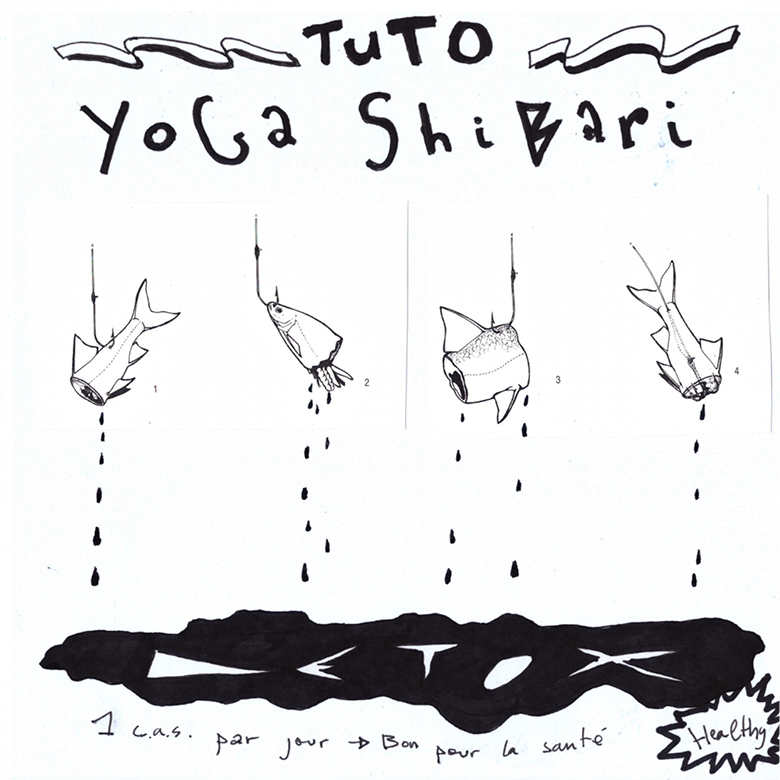 TuTO
YoGa ShiBari
1
2
3
4
DETOX
1 c.a.s. par jour → Bon pour la santé
Healthy